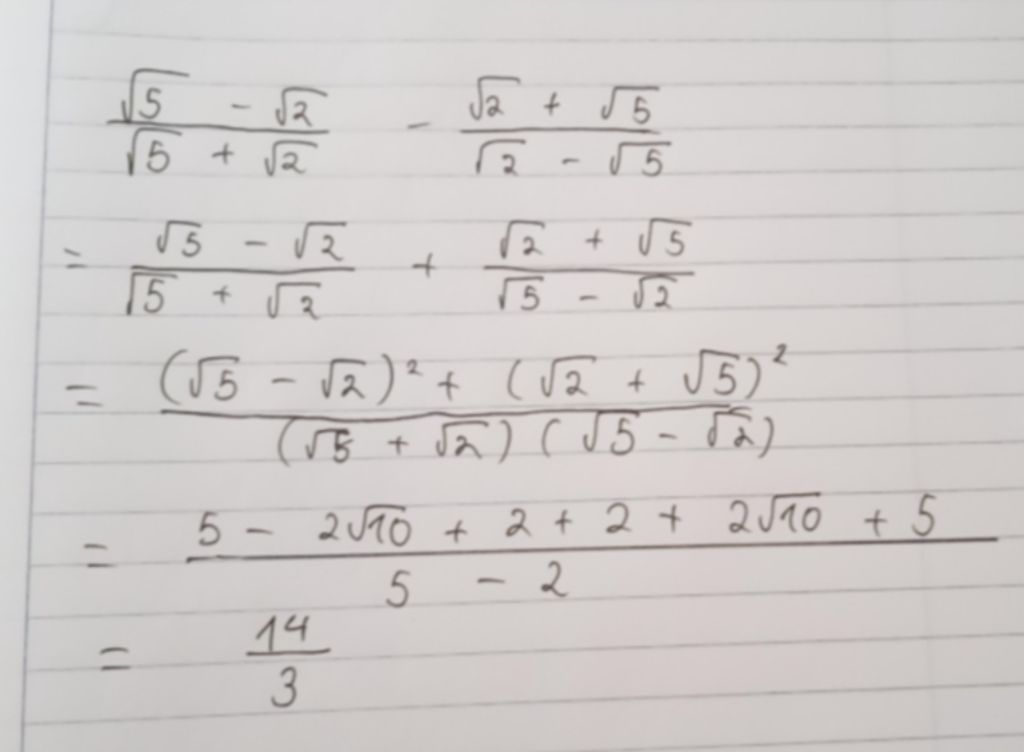 (√5 - √2)/(√5 + √2) - (√2 + √5)/(√2 - √5)
= (√5 - √2)/(√5 + √2) + (√2 + √5)/(√5 - √2)
= ((√5 - √2)² + (√2 + √5)²)/((√5 + √2)(√5 - √2))
= (5 - 2√10 + 2 + 2 + 2√10 + 5)/(5 - 2)
= 14/3